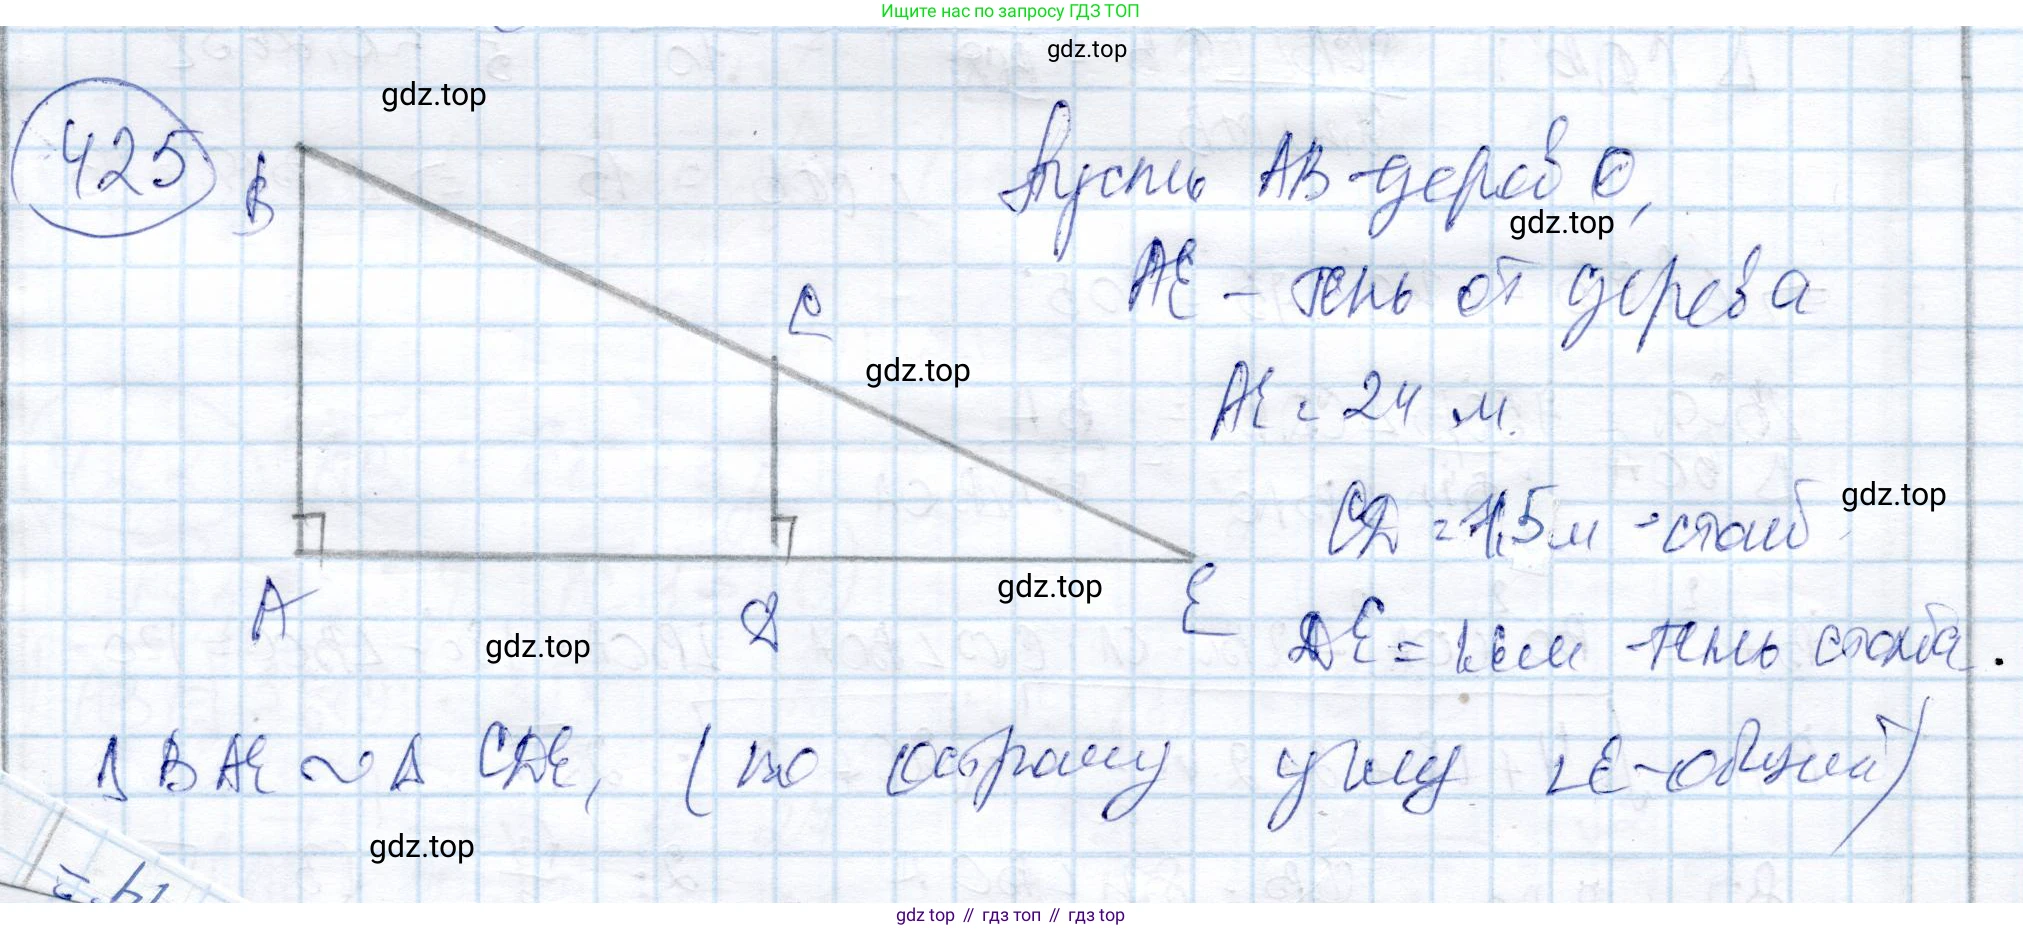 Ищите нас по запросу ГДЗ ТОП
gdz.top
gdz.top
425
B
Пусть AB - дерево,
gdz.top
AE - тень от дерева
C
gdz.top
AE = 24 м.
CD = 1,5м - столб
gdz.top
A
D
E
gdz.top
gdz.top
DE = 1,6м - тень столба.
Δ BAE ~ Δ CDE, (по острому углу ∠E - общий)
gdz.top
gdz top // гдз топ // гдз top